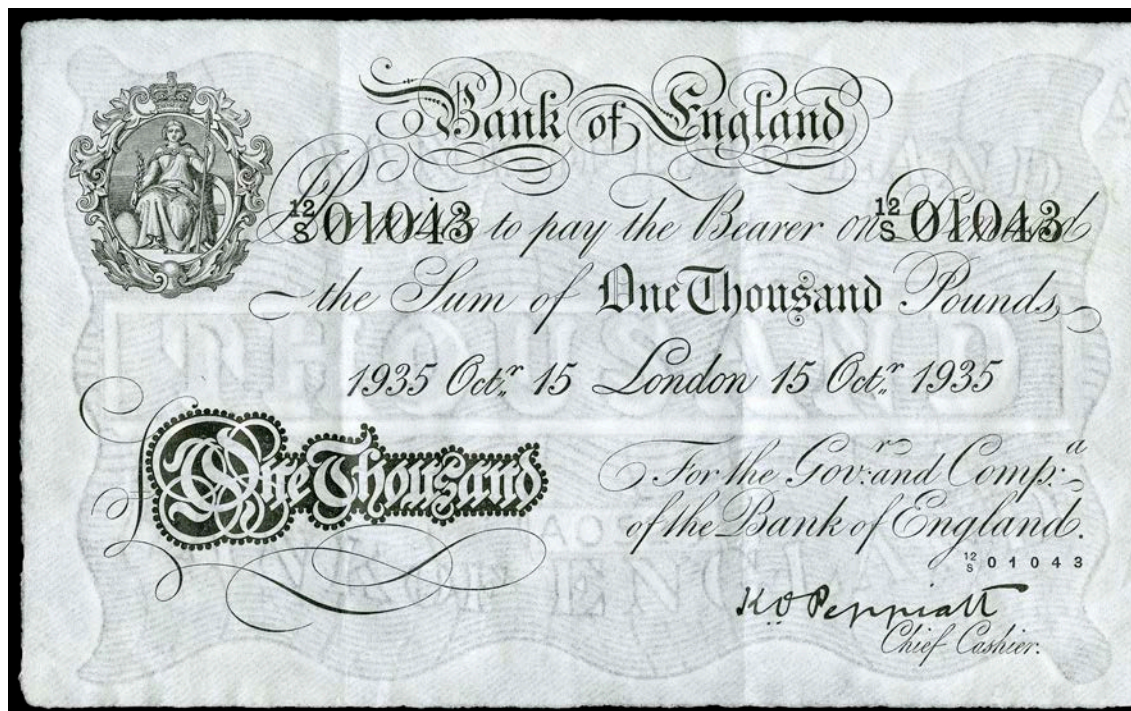 Bank of England
12/S 01043 to pay the Bearer on 12/S 01043
the Sum of One Thousand Pounds
1935 Octr. 15 London 15 Octr. 1935
One Thousand
For the Govr: and Compa:
of the Bank of England.
12/S 01043
K O Peppiatt
Chief Cashier.